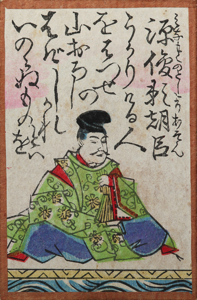 源俊頼朝臣
みなもとのとしよりあそん
うかりける人
をはつせの
山おろしの
はげしかれ
とは
いのらぬものを